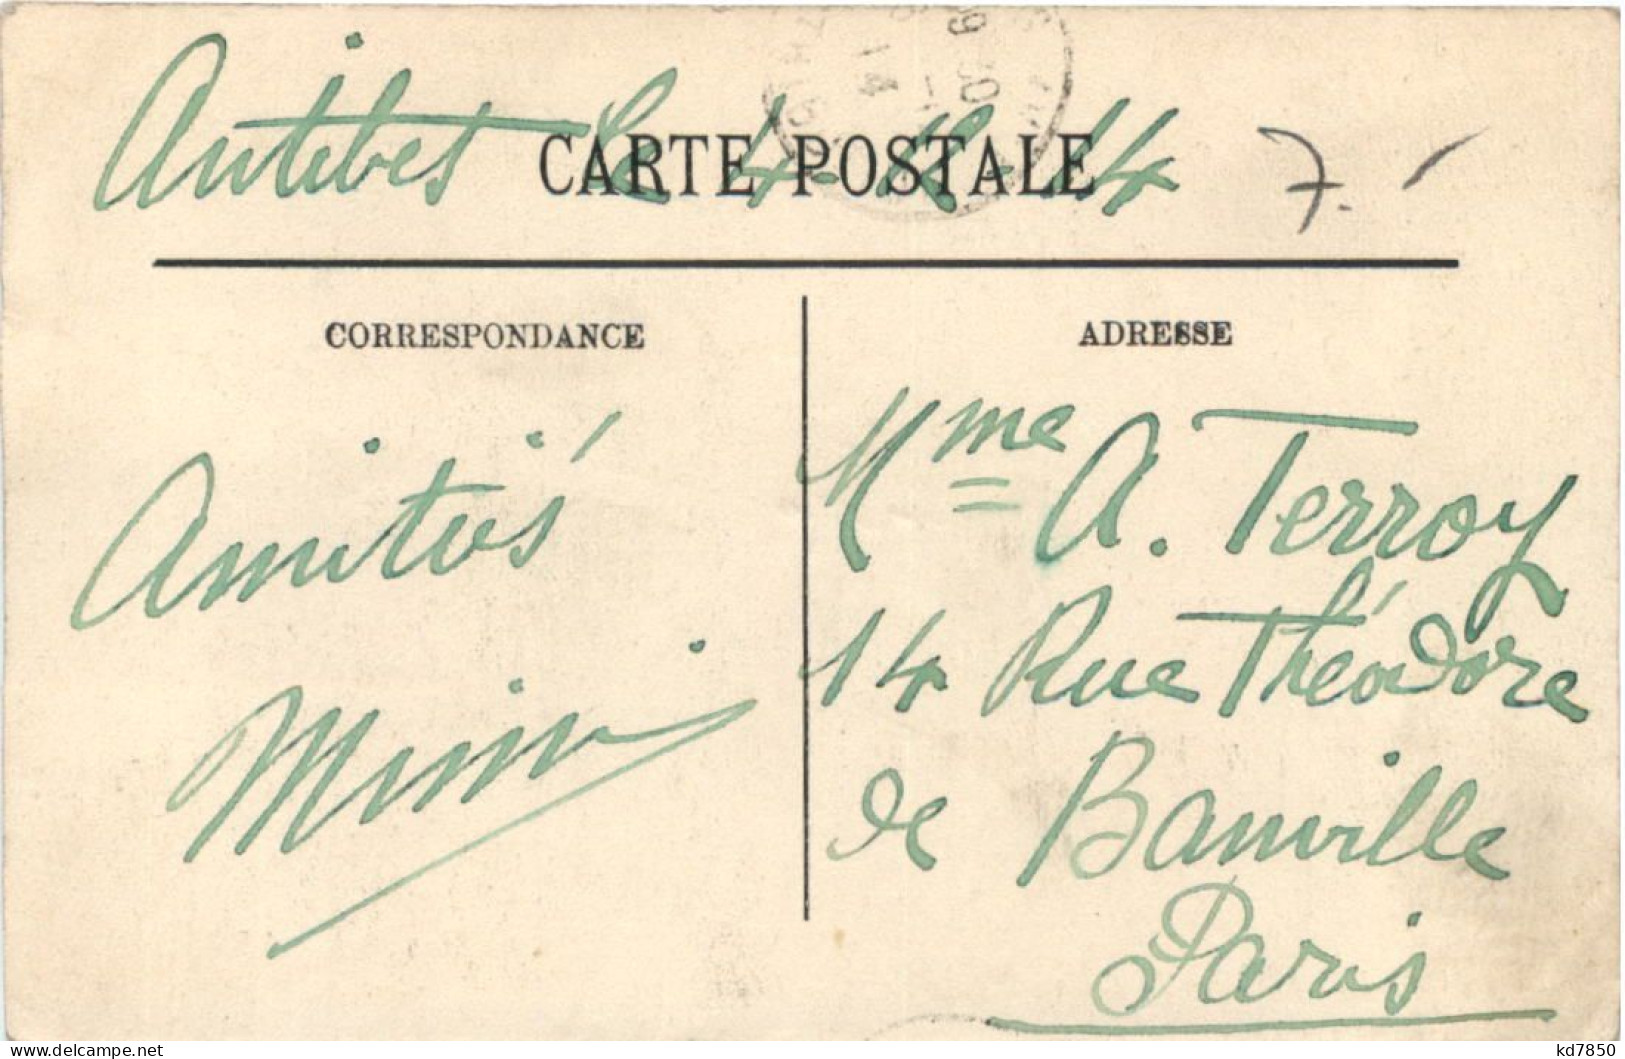 Antibes le 4. 2. 14
CARTE POSTALE
7.-
CORRESPONDANCE
ADRESSE
Amitiés
Mimi
Mme A. Terroy
14 Rue Théodore
de Banville
Paris
kd7850